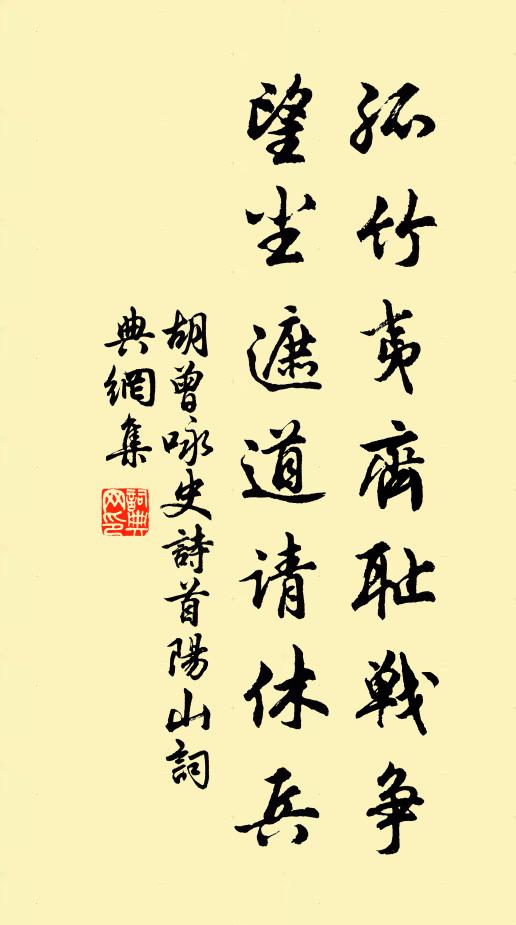 孤竹夷齊耻戰争
望尘遮道请休兵
胡曾咏史詩首陽山詞
典網集
詞典網印